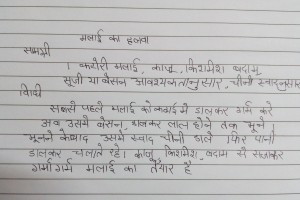 मलाई का हलवा
सामग्री
1 कटोरी मलाई, काजू, किशमिश बदाम,
सूजी या बेसन आवश्यकतानुसार, चीनी स्वादनुसार
विधि
सबसे पहले मलाई को कढाई में डालकर गर्म करे
अब उसमें बेसन, डालकर लाल होने तक भूने
भूनने के बाद उसमें स्वाद चीनी डाले फिर पानी
डालकर चलाते रहे। काजू किशमिश, बदाम से सजाकर
गर्मा गर्म मलाई का तैयार है